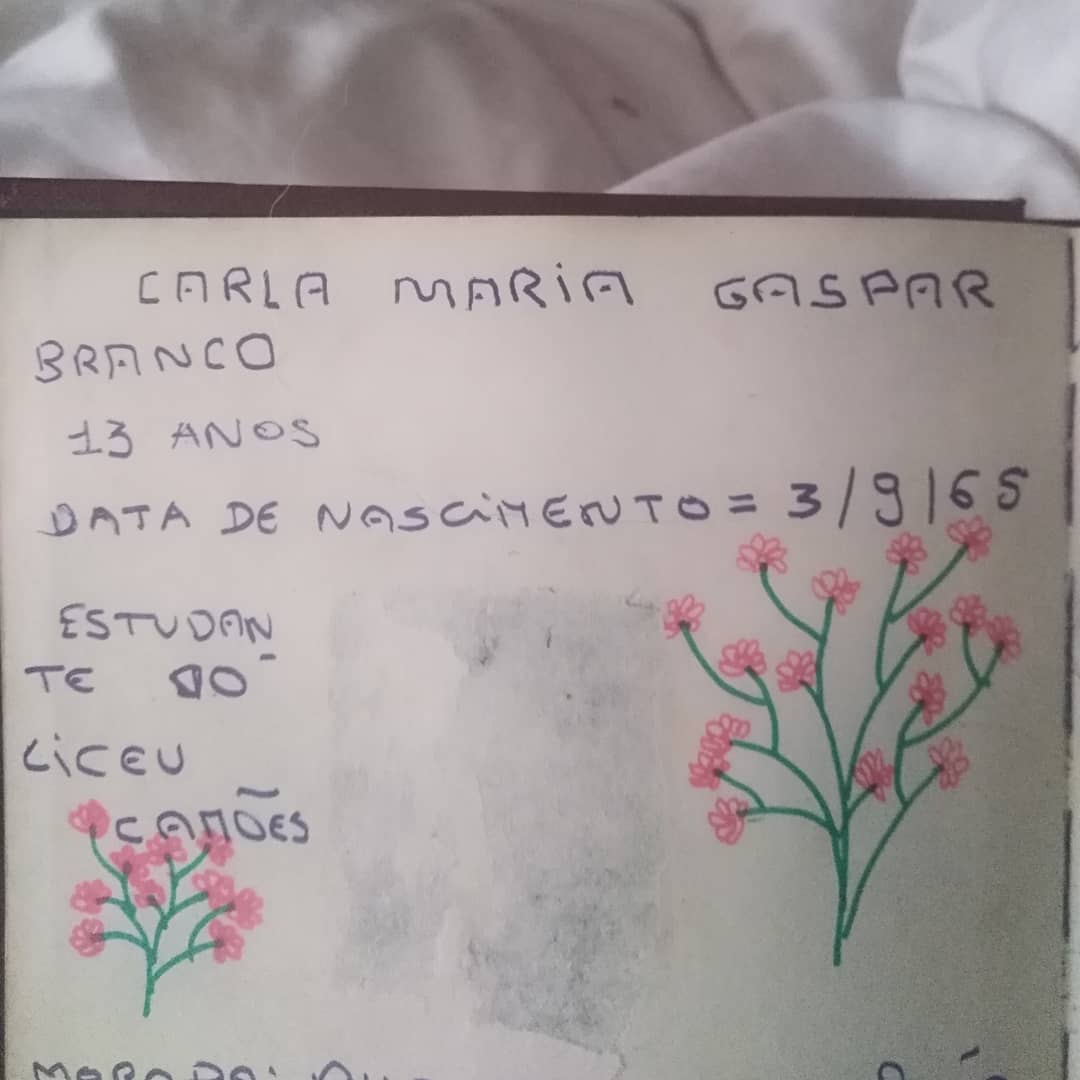 CARLA MARIA GASPAR
BRANCO
13 ANOS
DATA DE NASCIMENTO = 3/9/65
ESTUDAN
TE DO
LICEU
CAMÕES
MORADA: